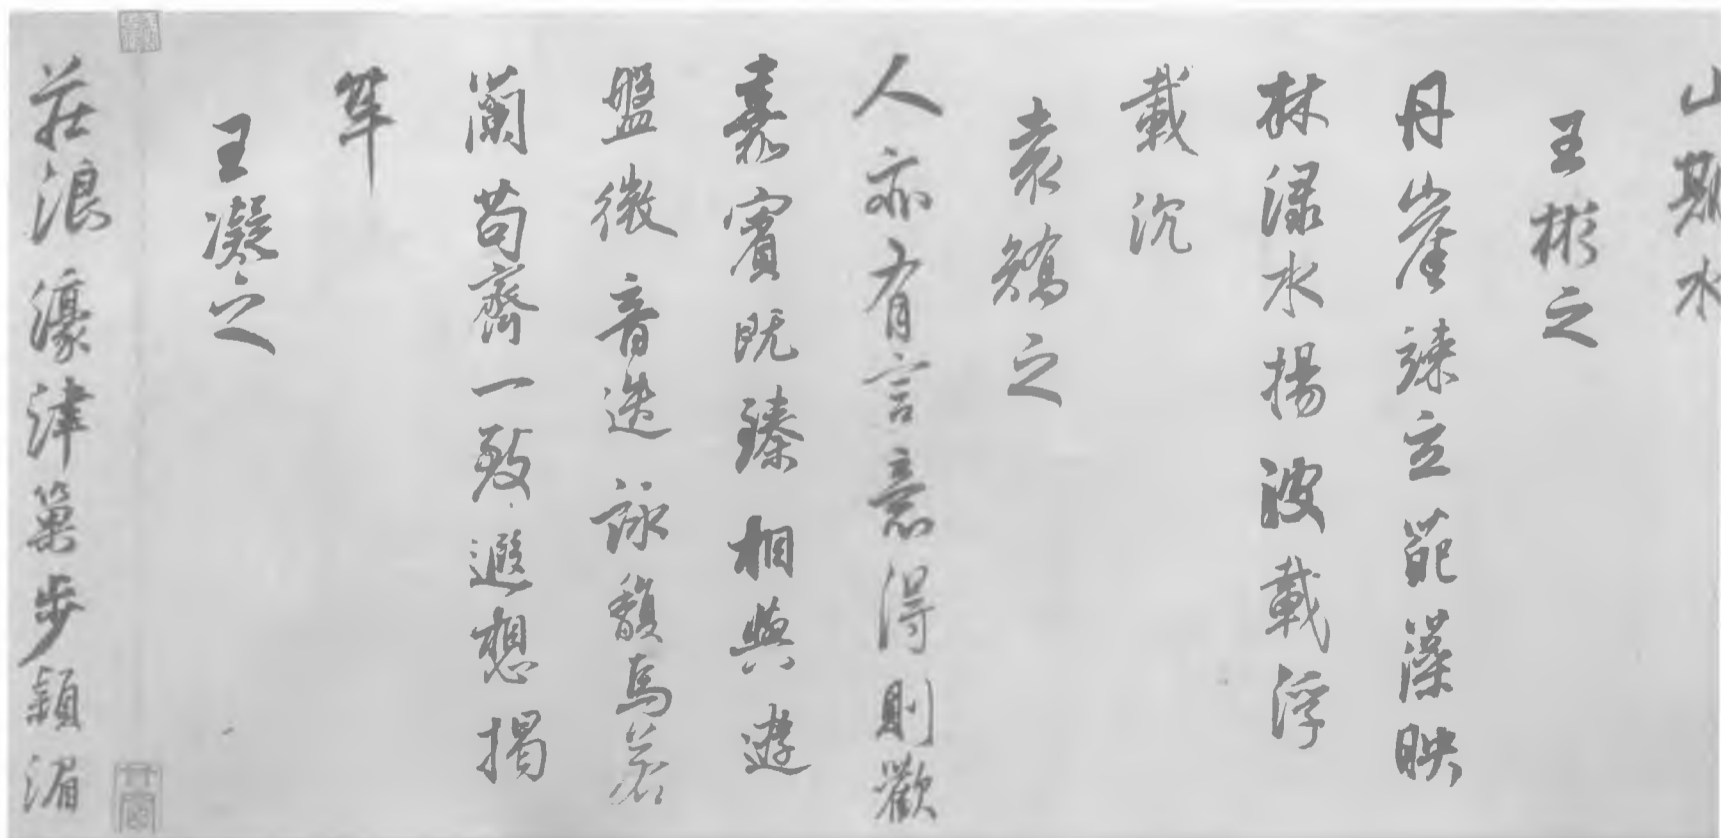 山期水
王彬之
丹崖竦立葩藻映
林渌水揚波載浮
載沉
袁嶠之
人亦有言意得則歡
嘉賓既臻相與遊
盤微音迭詠馥焉若
蘭苟齊一致遐想揭
竿
王凝之
莊浪濠津巢步潁湄